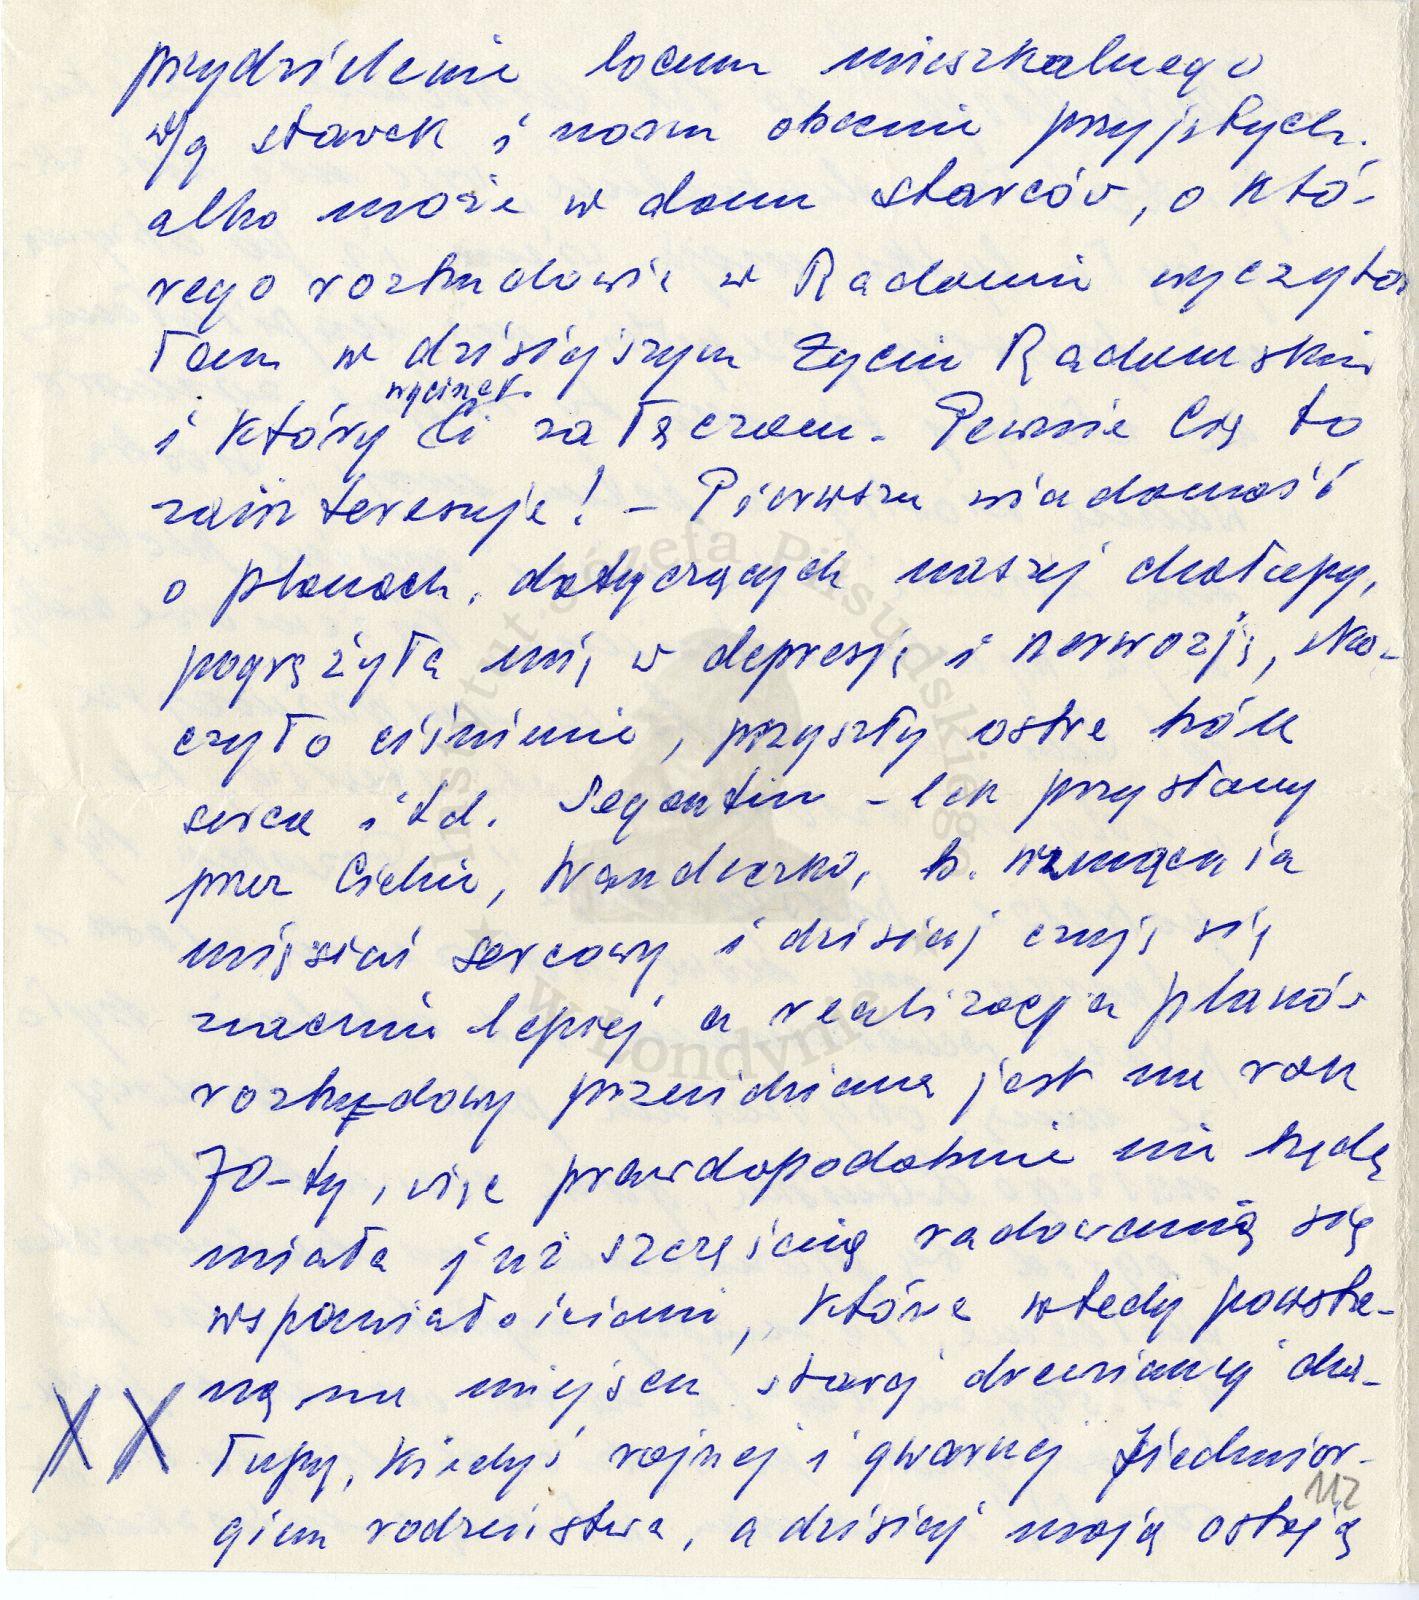 przydzielenie locum mieszkalnego
w/g stawek i norm obecnie przyjętych.
albo może w domu starców, o któ-
rego rozbudowie w Radomiu wyczyta
łam w dzisiejszym Życiu Radomskim
wycinek
i który Ci załączam. Pewnie Cię to
zainteresuje! – Pierwsza wiadomość
o planach, dotyczących naszej chałupy,
pogrążyła mię w depresję i nerwozję, sko-
czyło ciśnienie, przyszły ostre bóle
serca itd. Segontin – lek przysłany
przez Ciebie, Wandeczko, b. wzmacnia
mięsień sercowy i dzisiaj czuję się
znacznie lepiej a realizacja planów
rozbudowy przewidziana jest na rok
70-ty, więc prawdopodobnie nie będę
miała już szczęścia radowania się
wspaniałościami, które wtedy powsta-
ną na miejscu starej drewnianej cha-
łupy, kiedyś rojnej i gwarnej siedmior-
giem rodzeństwa, a dzisiaj moją ostoją
XX
112
Instytut Józefa Piłsudskiego
w Londynie